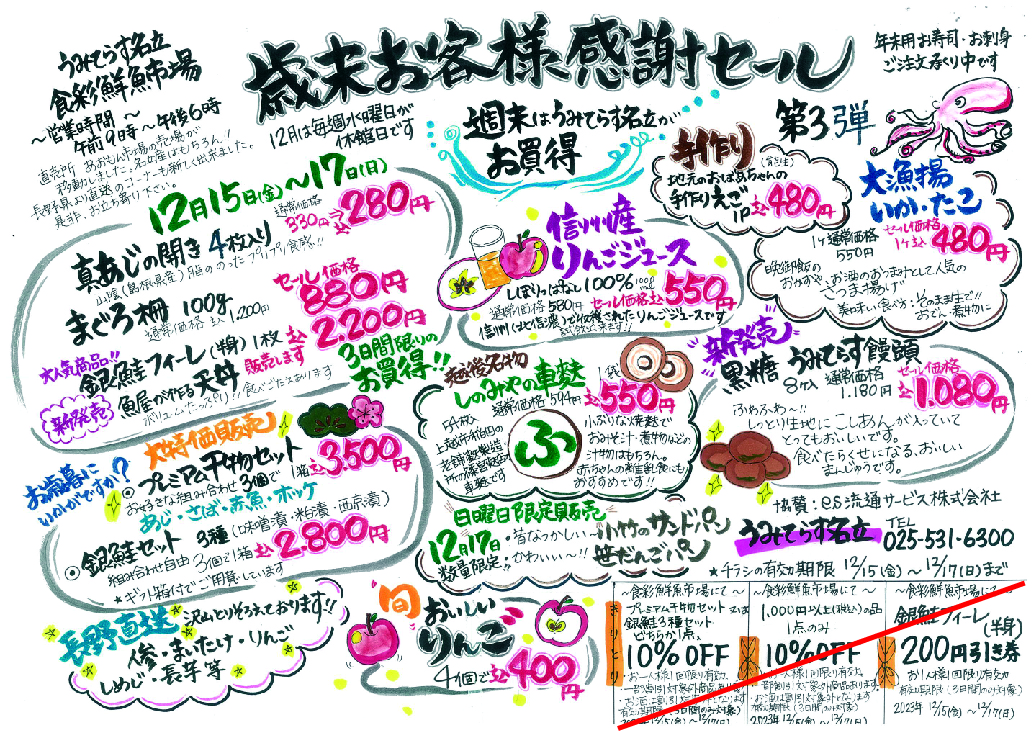 うみてらす名立
食彩鮮魚市場
～営業時間～
午前9時～午後6時
歳末お客様感謝セール
年末用お寿司・お刺身
ご注文承り中です
12月は毎週水曜日が
休館日です
直売所 あおぞら市場の売場が
移動しました。名立産はもちろん!
長野県より直送のコーナーも新しく出来ました。
是非、お立ち寄り下さい。
週末はうみてらす名立が
お買得
第3弾
12月15日(金)～17日(日)
真あじの開き 4枚入り
通常価格
330円
税込280円
山陰(島根県産)
まぐろ柵 100g
通常価格 税込 1,200円
セール価格
880円
大人気商品!!
銀鮭フィーレ(半身) 1枚
税込2,200円
新発売
魚屋が作る天丼
ボリュームたっぷり!! 食べごたえあります
販売します
3日間限りの
お買得!!
手作り
地元のおばあちゃんの
手作りえご
1P
税込480円
大漁揚
いか・たこ
1ヶ 通常価格
550円
セール価格
1ヶ税込480円
晩御飯の
おかずや、お酒のおつまみとして人気の
さつま揚げ
美味しい食べ方:そのまま生で!!
おでん・煮物に
信州産
りんごジュース
しぼりっぱなし 100%
通常価格 580円
セール価格 税込550円
信州(北信濃)で収穫されたりんごジュースです
越後名物
しのみやの車麩
通常価格 594円
1袋
税込550円
ふ
小ぶりな焼麩で
おみそ汁・煮物などの
汁物はもちろん。
赤ちゃんの離乳食にも
おすすめです!!
新発売
黒糖 うみてらす饅頭
8ヶ入 通常価格
1,180円
セール価格
税込1,080円
ふわふわ～!!
しっとり生地に こしあんが入っていて
とってもおいしいです。
食べだらくせになる、おいしい
まんじゅうです。
お歳暮に
いかがですか?
大特価販売
プレミアム干物セット
お好きな組み合わせ 3個で 1箱
税込3,500円
あじ・さば・赤魚・ホッケ
銀鮭セット 3種(味噌漬・粕漬・西京漬)
組み合わせ自由 3個で1箱 税込2,800円
★ギフト箱付でご用意しています
日曜日限定販売
12月17日
数量限定!!
・昔なつかしい～ 小竹のサンドパン
・かわいい～!! 笹だんごパン
協賛:es流通サービス株式会社
うみてらす名立
TEL
025-531-6300
★チラシの有効期限 12/15(金)～12/17(日)まで
長野直送
沢山とりそろえております!!
人参・まいたけ・りんご
しめじ・長芋 等
旬
おいしい
りんご
4個で
税込400円
きりとり
～食彩鮮魚市場にて～
プレミアム干物セット 又は
銀鮭3種セット
どちらか1点、
10%OFF
・お一人様1回限り有効
～食彩鮮魚市場にて～
1,000円以上(税込)の品
1点のみ
10%OFF
2023年 12/15(金)～12/17(日)
～食彩鮮魚市場にて～
銀鮭フィーレ
(半身)
200円引き券
お1人様1回限り有効
有効期限(3日間のみ対象)
2023年 12/15(金)～12/17(日)